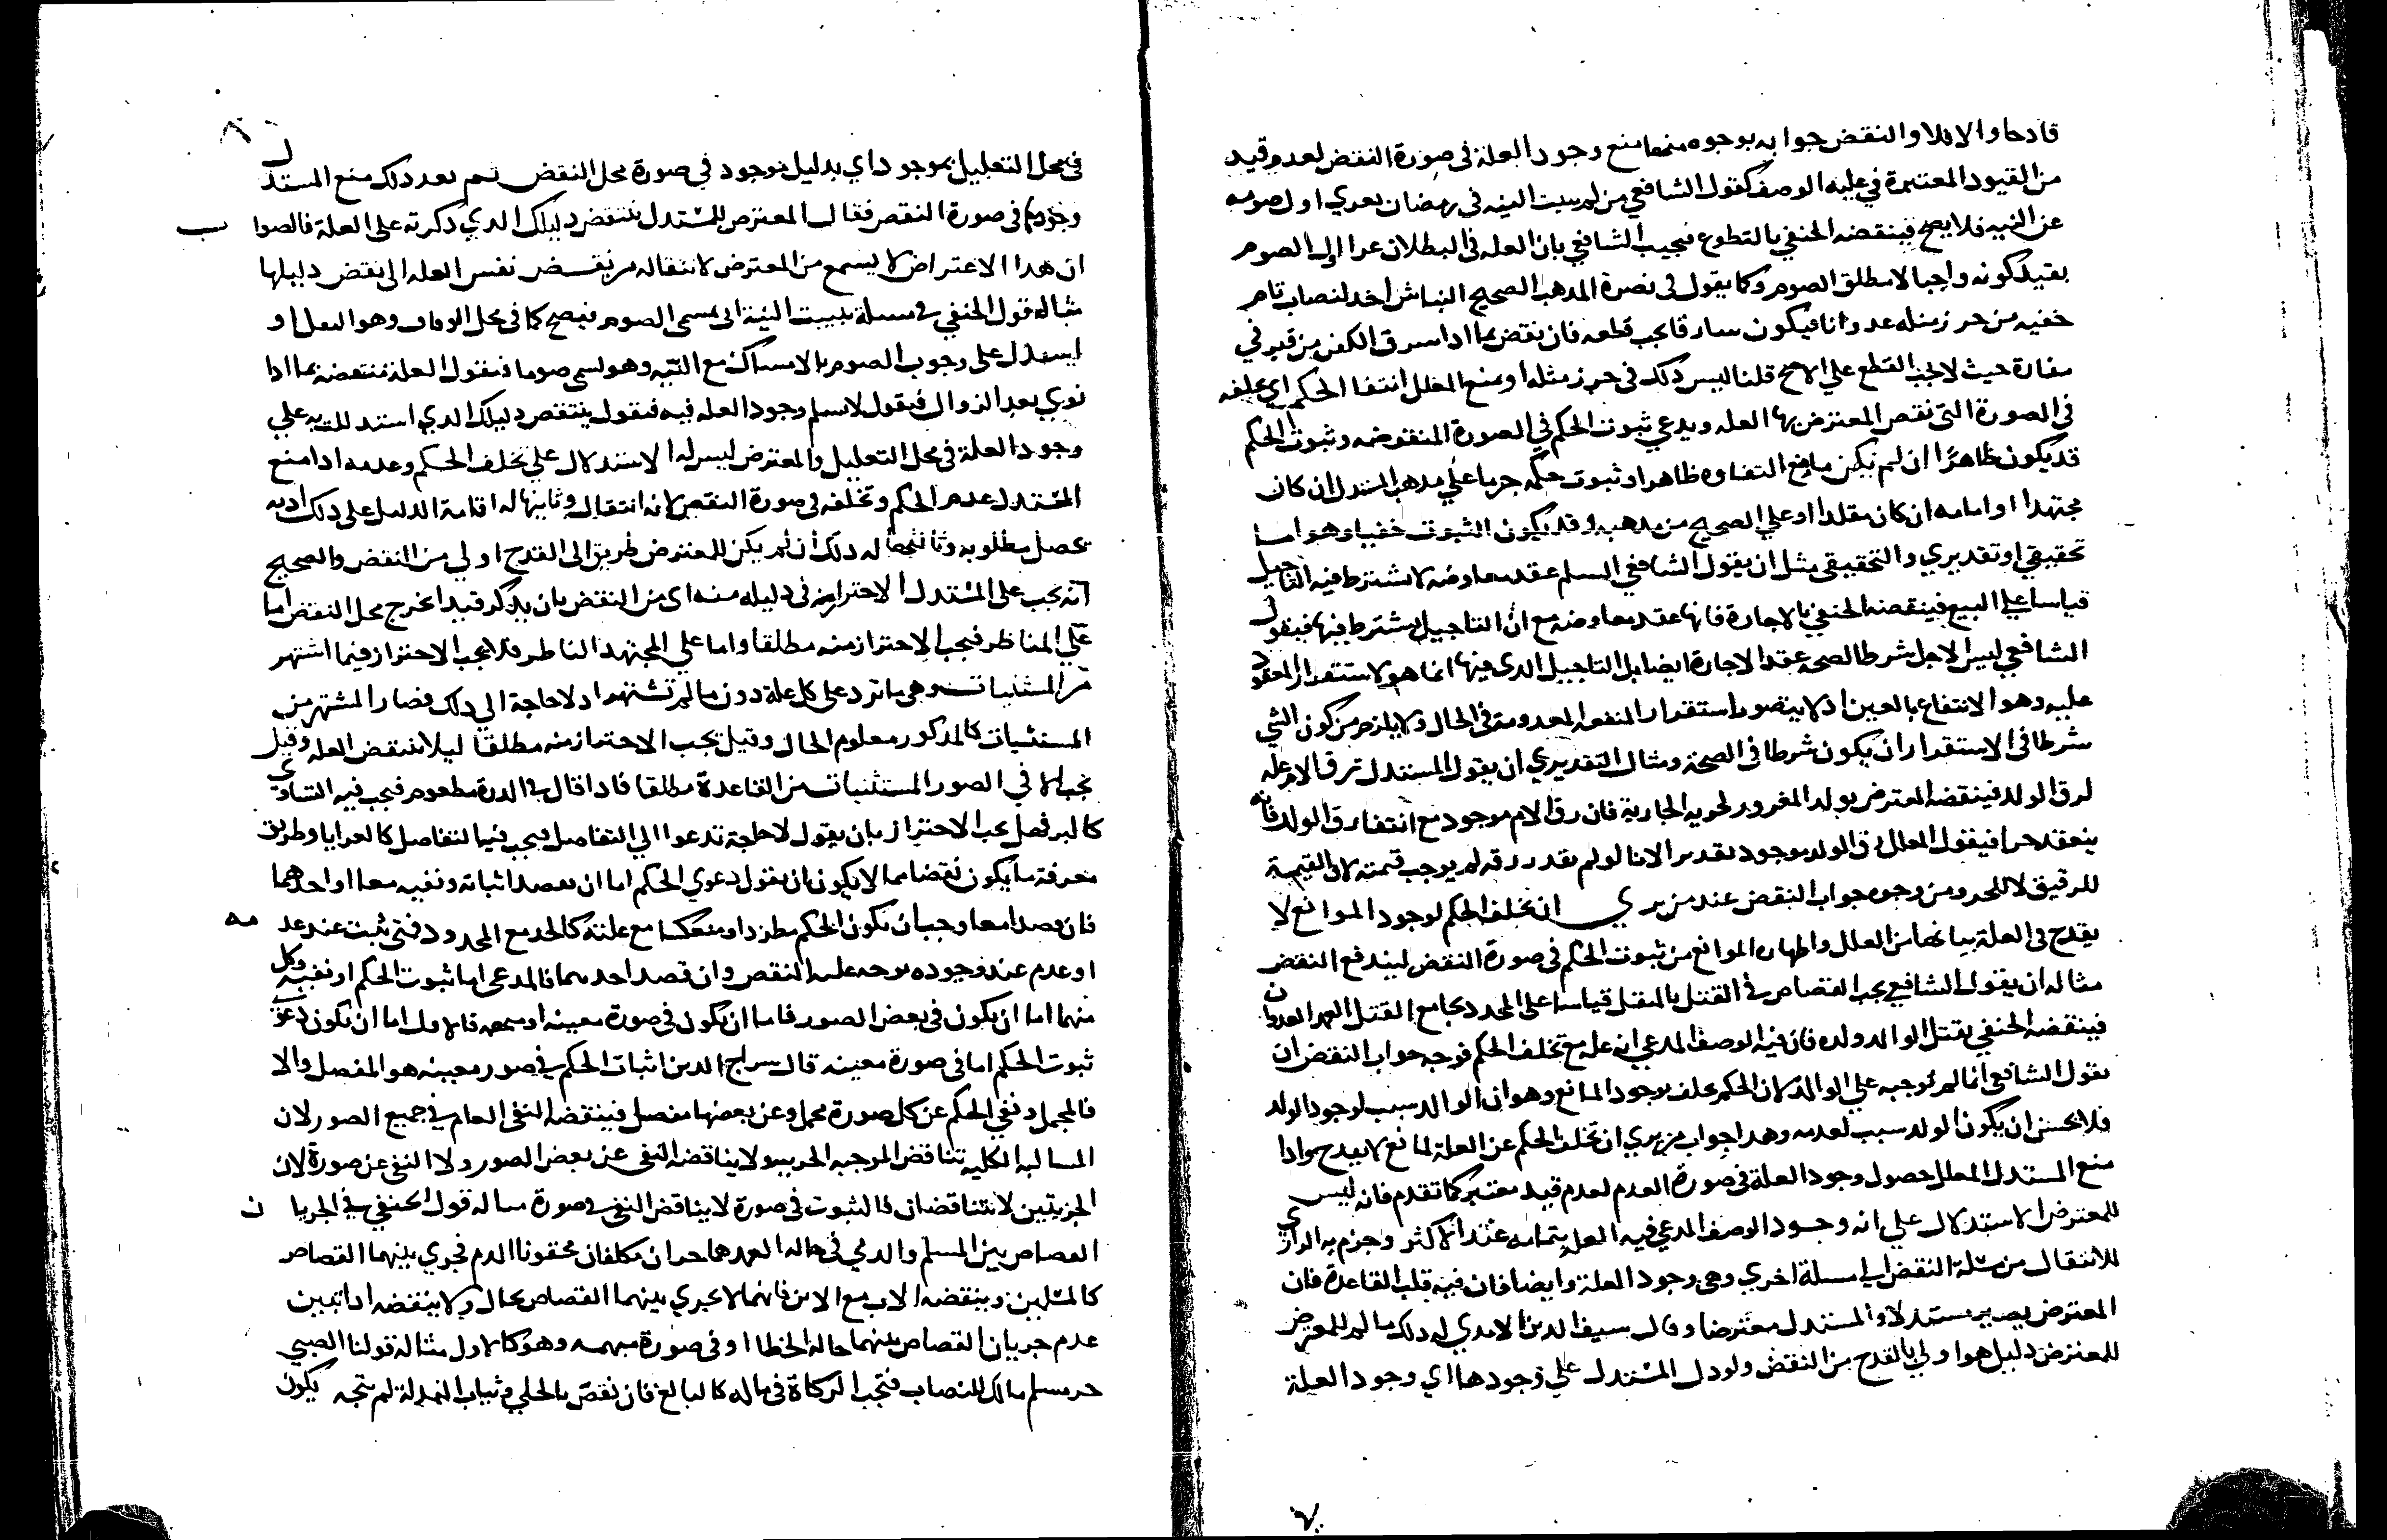 قادحا والا فلا والنقض جوابه بوجوه منها منع وجود العلة في صورة النقض لعدم قيد
من القيود المعتبرة في علية الوصف كقول الشافعي من لم يبيت النية في رمضان تعري اول صومه
عن النيه فلا يصح فينقضه الحنفي بالتطوع فيجيب الشافعي بان العله في البطلان عرا اول الصوم
بقيد كونه واجبا لا مطلق الصوم وكما يقول في نصرة المذهب الصحيح النباش اخذ لنصاب تام
خفيه من حرز مثله عدوانا فيكون سارقا يجب قطعه فان نقض بما اذا سرق الكفن من قبر في
مفازة حيث لا يجب القطع علي الاصح قلنا ليس ذلك في حرز مثله او يمنع المعلل انتفا الحكم اي تخلفه
في الصورة التي نقض المعترض بها العله ويدعي ثبوت الحكم في الصورة المنقوضه وثبوت الحكم
قد يكون ظاهرا ان لم يكن مانع ظاهرا وثبوت حكمه جزما علي مذهب المستدل ان كان
مجتهدا او امامه ان كان مقلدا او علي الصحيح من مذهبه وقد يكون الثبوت خفيا وهو اما
تحقيقي او تقديري والتحقيقي مثل ان يقول الشافعي السلم عقد معاوضه لا يشترط فيه التاجيل
قياسا علي البيع فينقضه الحنفي بالاجارة فانها عقد معاوضه مع ان التاجيل يشترط فيها فيقول
الشافعي ليس الاجل شرطا لصحة عقد الاجارة ايضا بل التاجيل الذي فيها انما هو لاستقرار المعقود
عليه وهو الانتفاع بالعين اذ لا يتصور استقرار المنفعه المعدومة في الحال ولا يلزم من كون الشي
شرطا في الاستقرار ان يكون شرطا في الصحة ومثال التقديري ان يقول المستدل رق الام عله
لرق الولد فينقضه المعترض بولد المغرور بحرية الجارية فان رق الام موجود مع انتفا رق الولد فانه
ينعقد حرا فيقول المعلل رق الولد موجود تقديرا لانا لو لم نقدر رقه لم يوجب قيمته لان القيمة
للرقيق لا للحر ومن وجوه جواب النقض عند من يري ان تخلف الحكم لوجود الموانع لا
يقدح في العلة بيانها من العلل واظهاره الموانع من ثبوت الحكم في صورة النقض ليندفع النقض
مثاله ان يقول الشافعي يجب القصاص في القتل بالمثقل قياسا على المحدد بجامع القتل العمد العدوان
فينقضه الحنفي بقتل الوالد ولده فان فيه الوصف المدعي انه عله مع تخلف الحكم فوجه جواب النقض ان
يقول الشافعي انما لم نوجبه علي الوالد لان الحكم تخلف لوجود المانع وهو ان الوالد سبب لوجود الولد
فلا يحسن ان يكون الولد سبب لعدمه وهذا جواب من يري ان تخلف الحكم عن العلة لمانع لا يقدح واذا
منع المستدل المعلل حصول وجود العلة في صورة العدم لعدم قيد معتبر كما تقدم فانه ليس
للمعترض الاستدلال علي انه وجود الوصف المدعي فيه العله بتمامه عند الاكثر وجزم به الرازي
للانتقال من مسئلة النقض الي مسئلة اخري وهي وجود العلة وايضا فان فيه قلب القاعدة فان
المعترض يصير مستدلا والمستدل معترضا وقال سيف الدين الامدي له ذلك ما لم للمعترض
للمعترض دليل هو اولي بالقدح من النقض ولو دل المستدل علي وجودها اي وجود العلة
في محل التعليل بموجود اي بدليل موجود في صورة محل النقض ثم بعد ذلك منع المستدل
وجودها في صورة النقض فقال المعترض للمستدل ينتقض دليلك الذي ذكرته على العلة فالصواب
ان هذا الاعتراض لا يسمع من المعترض لانتقاله من نقض نفس العله الى نقض دليلها
مثاله قول الحنفي في مسئلة تبييت النية اتى بمسمى الصوم فيصح كما في محل الوفاق وهو النفل او
يستدل على وجوب الصوم بالامساك مع النيه وهو يسمى صوما فنقول العلة منتقضة بما اذا
نوي بعد الزوال فيقول لا نسلم وجود العله فيه فنقول ينتقض دليلك الذي استدللت به علي
وجود العلة في محل التعليل والمعترض ليس له الاستدلال علي تخلف الحكم وعدمه اذا منع
المستدل عدم الحكم وتخلفه في صورة النقض لانه انتقال وثانيها له اقامة الدليل على ذلك اذ به
تحصل مطلوبه وثالثها له ذلك ان لم يكن للمعترض طريق الى القدح اولي من النقض والصحيح
انه يجب على المستدل الاحتراز في دليله منه اي من النقض بان يذكر قيدا يخرج محل النقض اما
علي المناظر فيجب الاحتراز منه مطلقا واما علي المجتهد الناظر فلا يجب الاحتراز فيما اشتهر
من المستثنيات وهي ما ترد على كل علة دون ما لم تشتهر اذ لا حاجة الي ذلك فصار المشتهر من
المستثنيات كالمذكور معلوم الحال وقيل يجب الاحتراز منه مطلقا ليلا تنتقض العله وقيل
يجب الا في الصور المستثنيات من القاعدة مطلقا فاذا قال في الذرة مطعوم فيجب فيه التساوي
كالبر فهل يجب الاحتراز بان يقول لا حاجة تدعوا الي التفاضل فيجب فيها التفاضل كالعرايا وطريق
معرفة ما يكون نقضا مما لا يكون ان نقول دعوي الحكم اما ان يقصد اثباته ونفيه معا او احدهما
فان قصدا معا وجب ان يكون الحكم مطردا ومنعكسا مع علته كالحد مع المحدود فمتى ثبت عند عدمه
او عدم عند وجوده توجه عليه النقض وان قصد احدهما فالمدعى اما ثبوت الحكم او نفيه وكل
منهما اما ان يكون في بعض الصور فاما ان يكون في صورة معينه او مبهمه فالاول اما ان يكون دعوى
ثبوت الحكم اما في صورة معينه قال سراج الدين اثبات الحكم في صور معينه هو المفصل والا
فالمجمل ونفي الحكم عن كل صورة مجمل وعن بعضها مفصل فينتقضه النفي العام في جميع الصور لان
السالبه الكليه تناقض الموجبه الجزييه ولا يناقضه النفي عن بعض الصور ولا النفي عن صورة لان
الجزيتين لا تتناقضان فالثبوت في صورة لا يناقض النفي في صورة مثاله قول الحنفي في الجريان
القصاص بين المسلم والذمي في حاله العمد هما حران مكلفان محقونا الدم فجري بينهما القصاص
كالمسلمين وينقضه الاب مع الابن فانهما لا يجري بينهما القصاص بحال ولا ينقضه اذا تبين
عدم جريان القصاص بينهما حاله الخطا او في صورة مبهمه وهو كالاول مثاله قولنا الصبي
حر مسلم مالك للنصاب فتجب الزكاة في ماله كالبالغ فان نقض بالحلي وثياب البذلة لم يتجه يكون